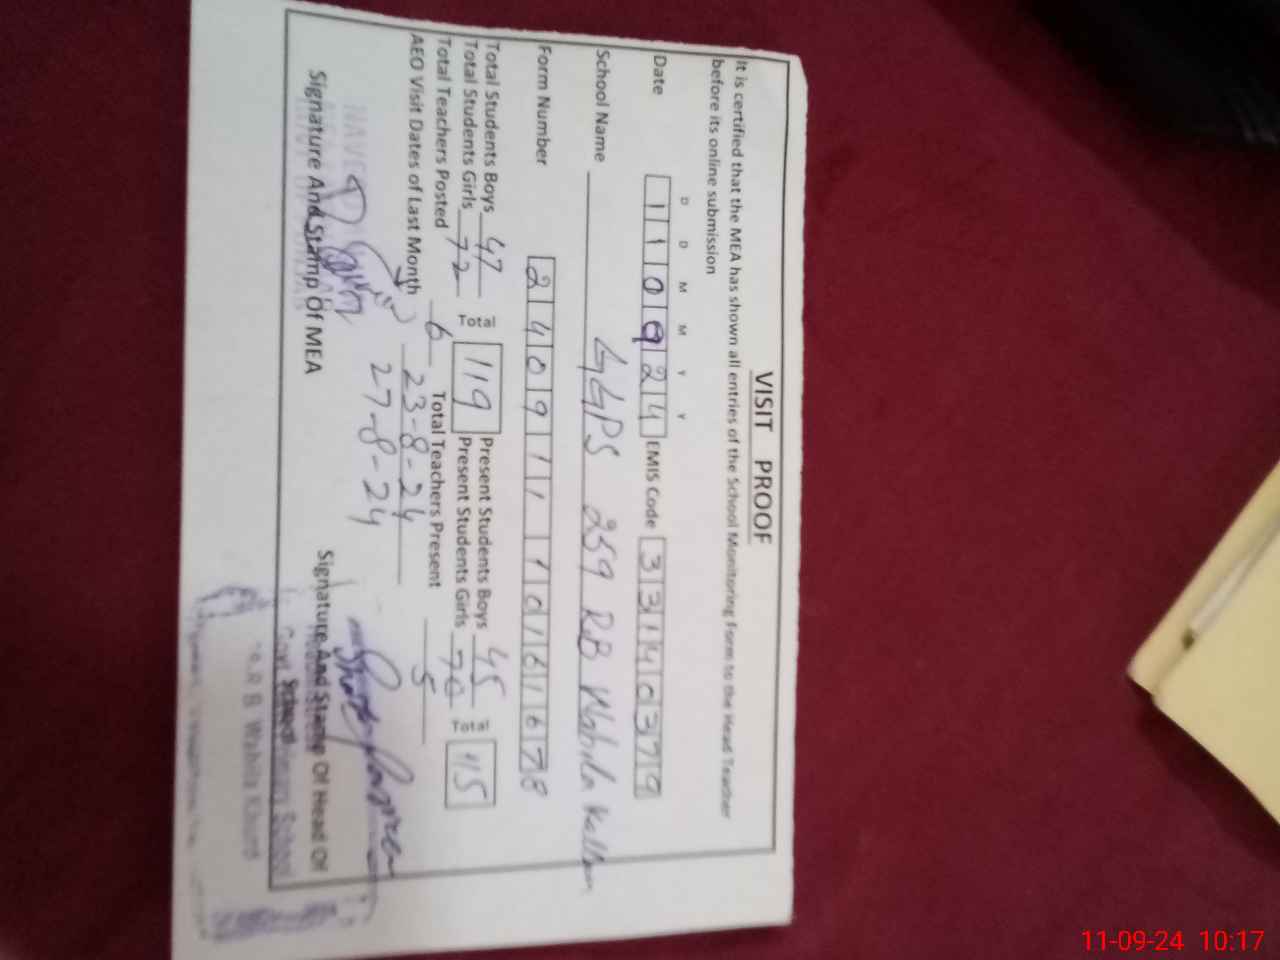 VISIT PROOF
It is certified that the MEA has shown all entries of the School Monitoring Form to the Head Teacher
before its online submission
D D M M Y Y
Date 110924 EMIS Code 33140379
School Name GGPS 259 RB Wahila Kallan
Form Number 24091110161678
Total Students Boys 47 Present Students Boys 45
Total Students Girls 72 Total 119 Present Students Girls 70 Total 115
Total Teachers Posted 6 Total Teachers Present 5
AEO Visit Dates of Last Month 23-8-24
27-8-24
Signature And Stamp Of MEA Signature And Stamp Of Head Of
School
R B Wahila Khurd
11-09-24 10:17